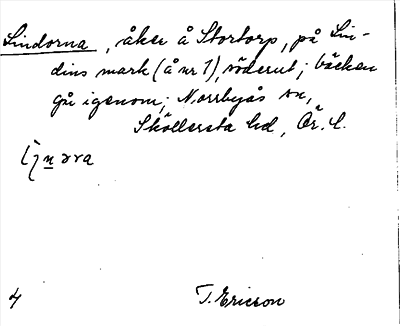 Lindorna, åker å Stortorp, på Lin-
dins mark (å nr 1), söderut; bäcken
går igenom; Norrbyås sn,
Sköllersta hd, Ör. l.
T. Ericson
4